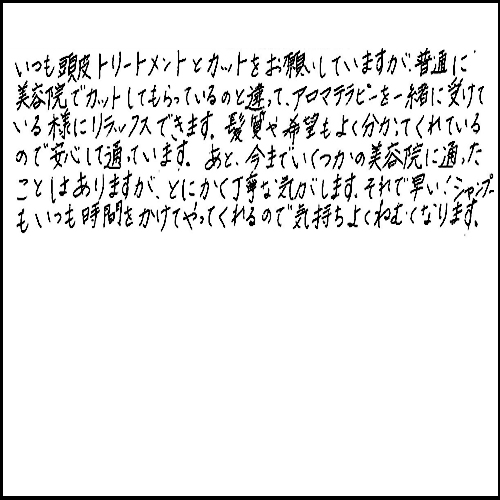 いつも頭皮トリートメントとカットをお願いしていますが、普通に
美容院でカットしてもらっているのと違って、アロマテラピーを一緒に受けて
いる様にリラックスできます。髪質や希望もよく分かってくれている
ので安心して通っています。あと、今までいくつかの美容院に通った
ことはありますが、とにかく丁寧な気がします。それで早い！シャンプー
もいつも時間をかけてやってくれるので気持ちよくねむくなります。